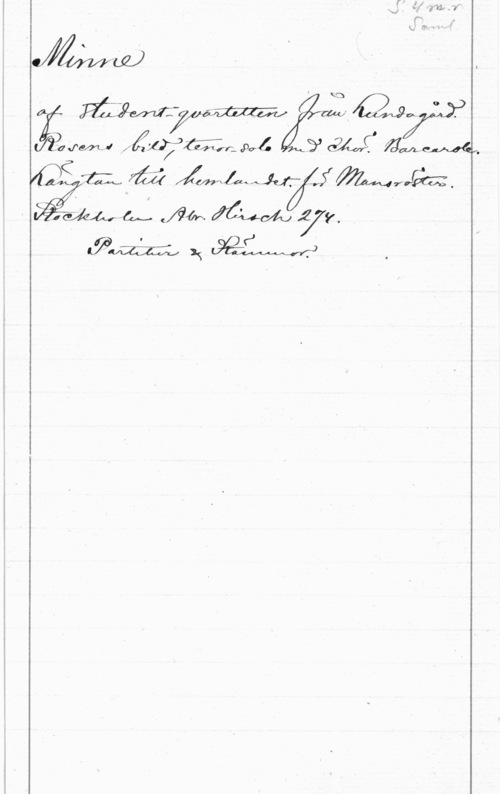 S. 4 m.r
Saml
Minne
af Student-qvartetten från Lundagård.
Rosens bild, tenor-solo med chör. Barcarole.
Längtan till hemlandet. för Mansröster.
Stockholm Abr. Hirsch 274.
Partitur & Stämmor.